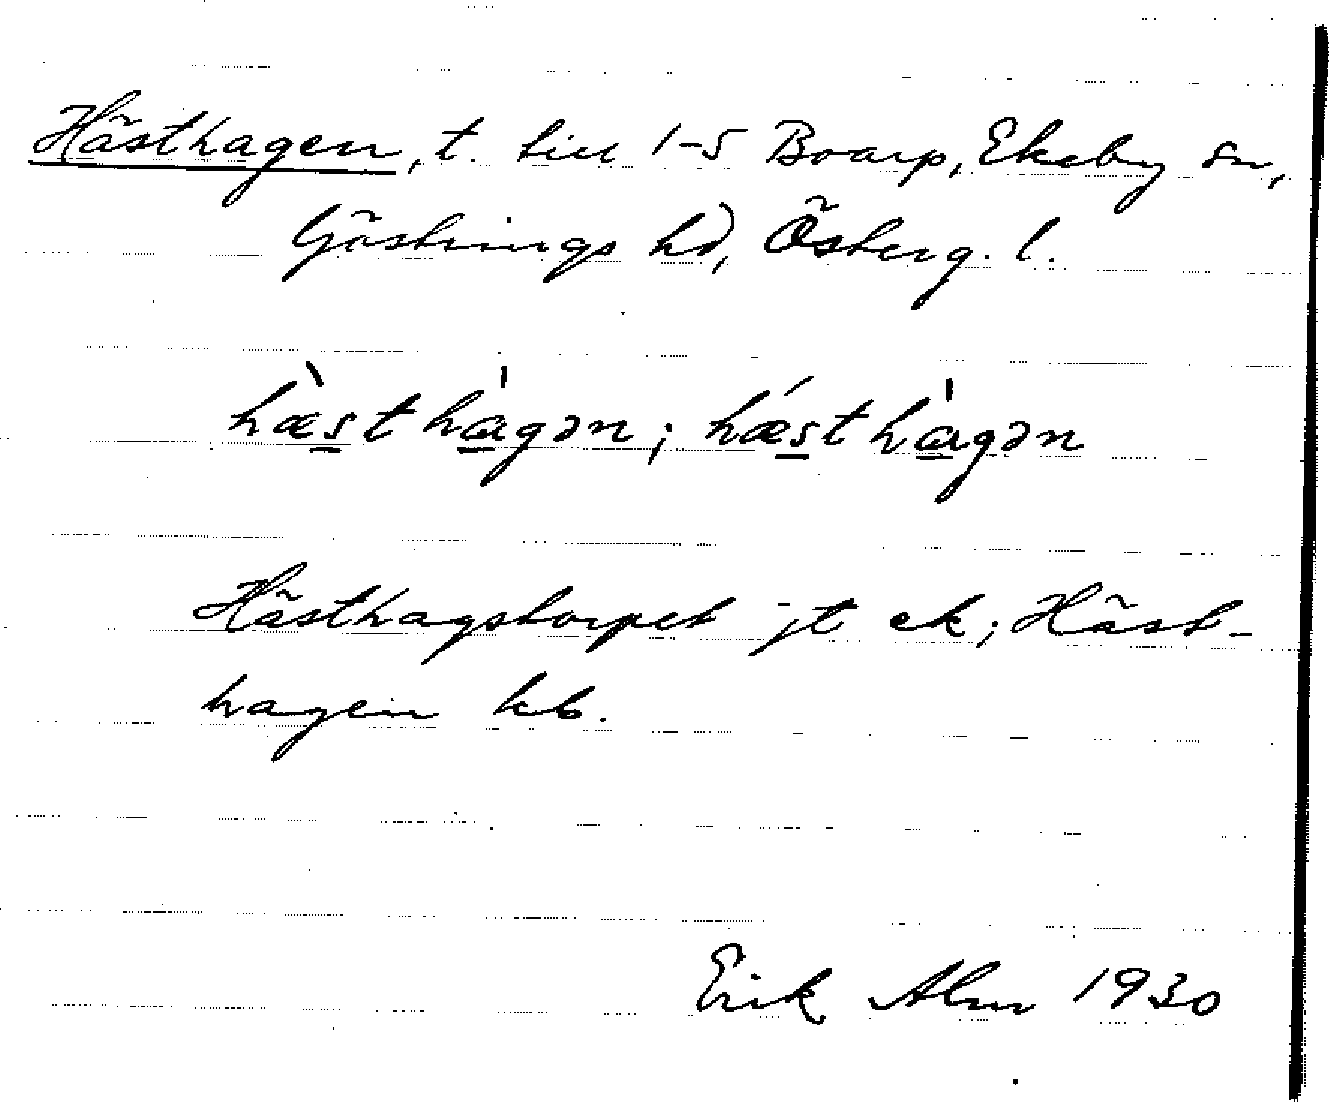 Hästhagen, t. till 1-5 Boarp, Ekeby sn,
Göstrings hd, Österg. l.
hæ̀sthàgən; hǽsthàgən
Hästhagstorpet jt ek; Häst-
hagen kb.
Erik Alm 1930